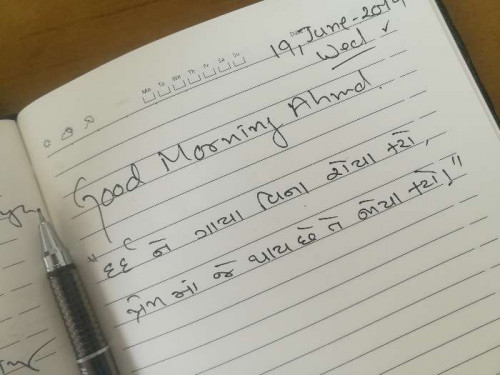 Date 19, June-2019
Mo Tu We Th Fr Sa Su
Wed
Good Morning Ahmd.
"દર્દ ને ગાયા વિના રોયા કરો,
પ્રેમ માં જે થાય છે તે જોયા કરો!"